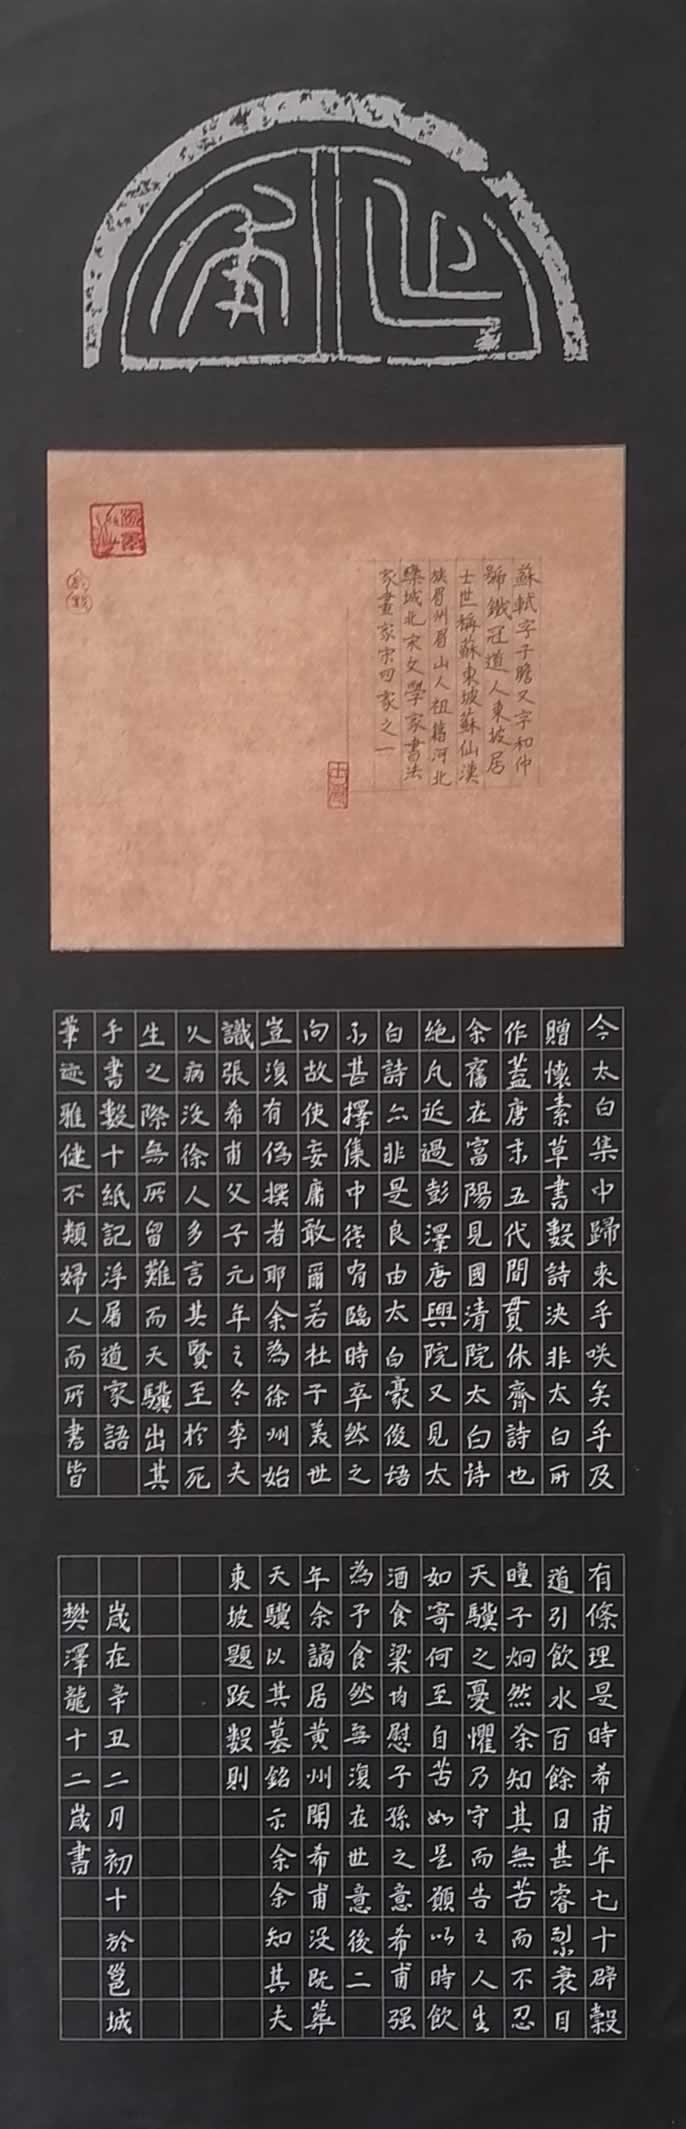 蘇軾字子瞻又字和仲
號鐵冠道人東坡居
士世稱蘇東坡蘇仙漢
族眉州眉山人祖籍河北
欒城北宋文學家書法
家畫家宋四家之一
今太白集中歸來乎咲矣乎及
贈懷素草書數詩決非太白所
作蓋唐末五代間貫休齊詩也
余舊在富陽見國清院太白詩
絶凡近過彭澤唐興院又見太
白詩亦非是良由太白豪俊語
不甚擇集中徃有臨時卒然之
向故使妄庸敢爾若杜子美世
豈復有偽撰者耶余為徐州始
識張希甫父子元年之冬李夫
人病没徐人多言其賢至於死
生之際無所留難而天驥出其
手書數十紙記浮屠道家語
筆迹雅健不類婦人而所書皆
有條理是時希甫年七十辟穀
道引飲水百餘日甚睿衰目
瞳子炯然余知其無苦而不忍
天驥之憂懼乃守而告之人生
如寄何至自苦如是願以時飲
酒食粱肉慰子孫之意希甫强
為予食然無復在世意後二
年余謫居黄州聞希甫没既葬
天驥以其墓銘示余余知其夫
東坡題跋數則
歲在辛丑二月初十於邕城
樊澤龍十二歲書